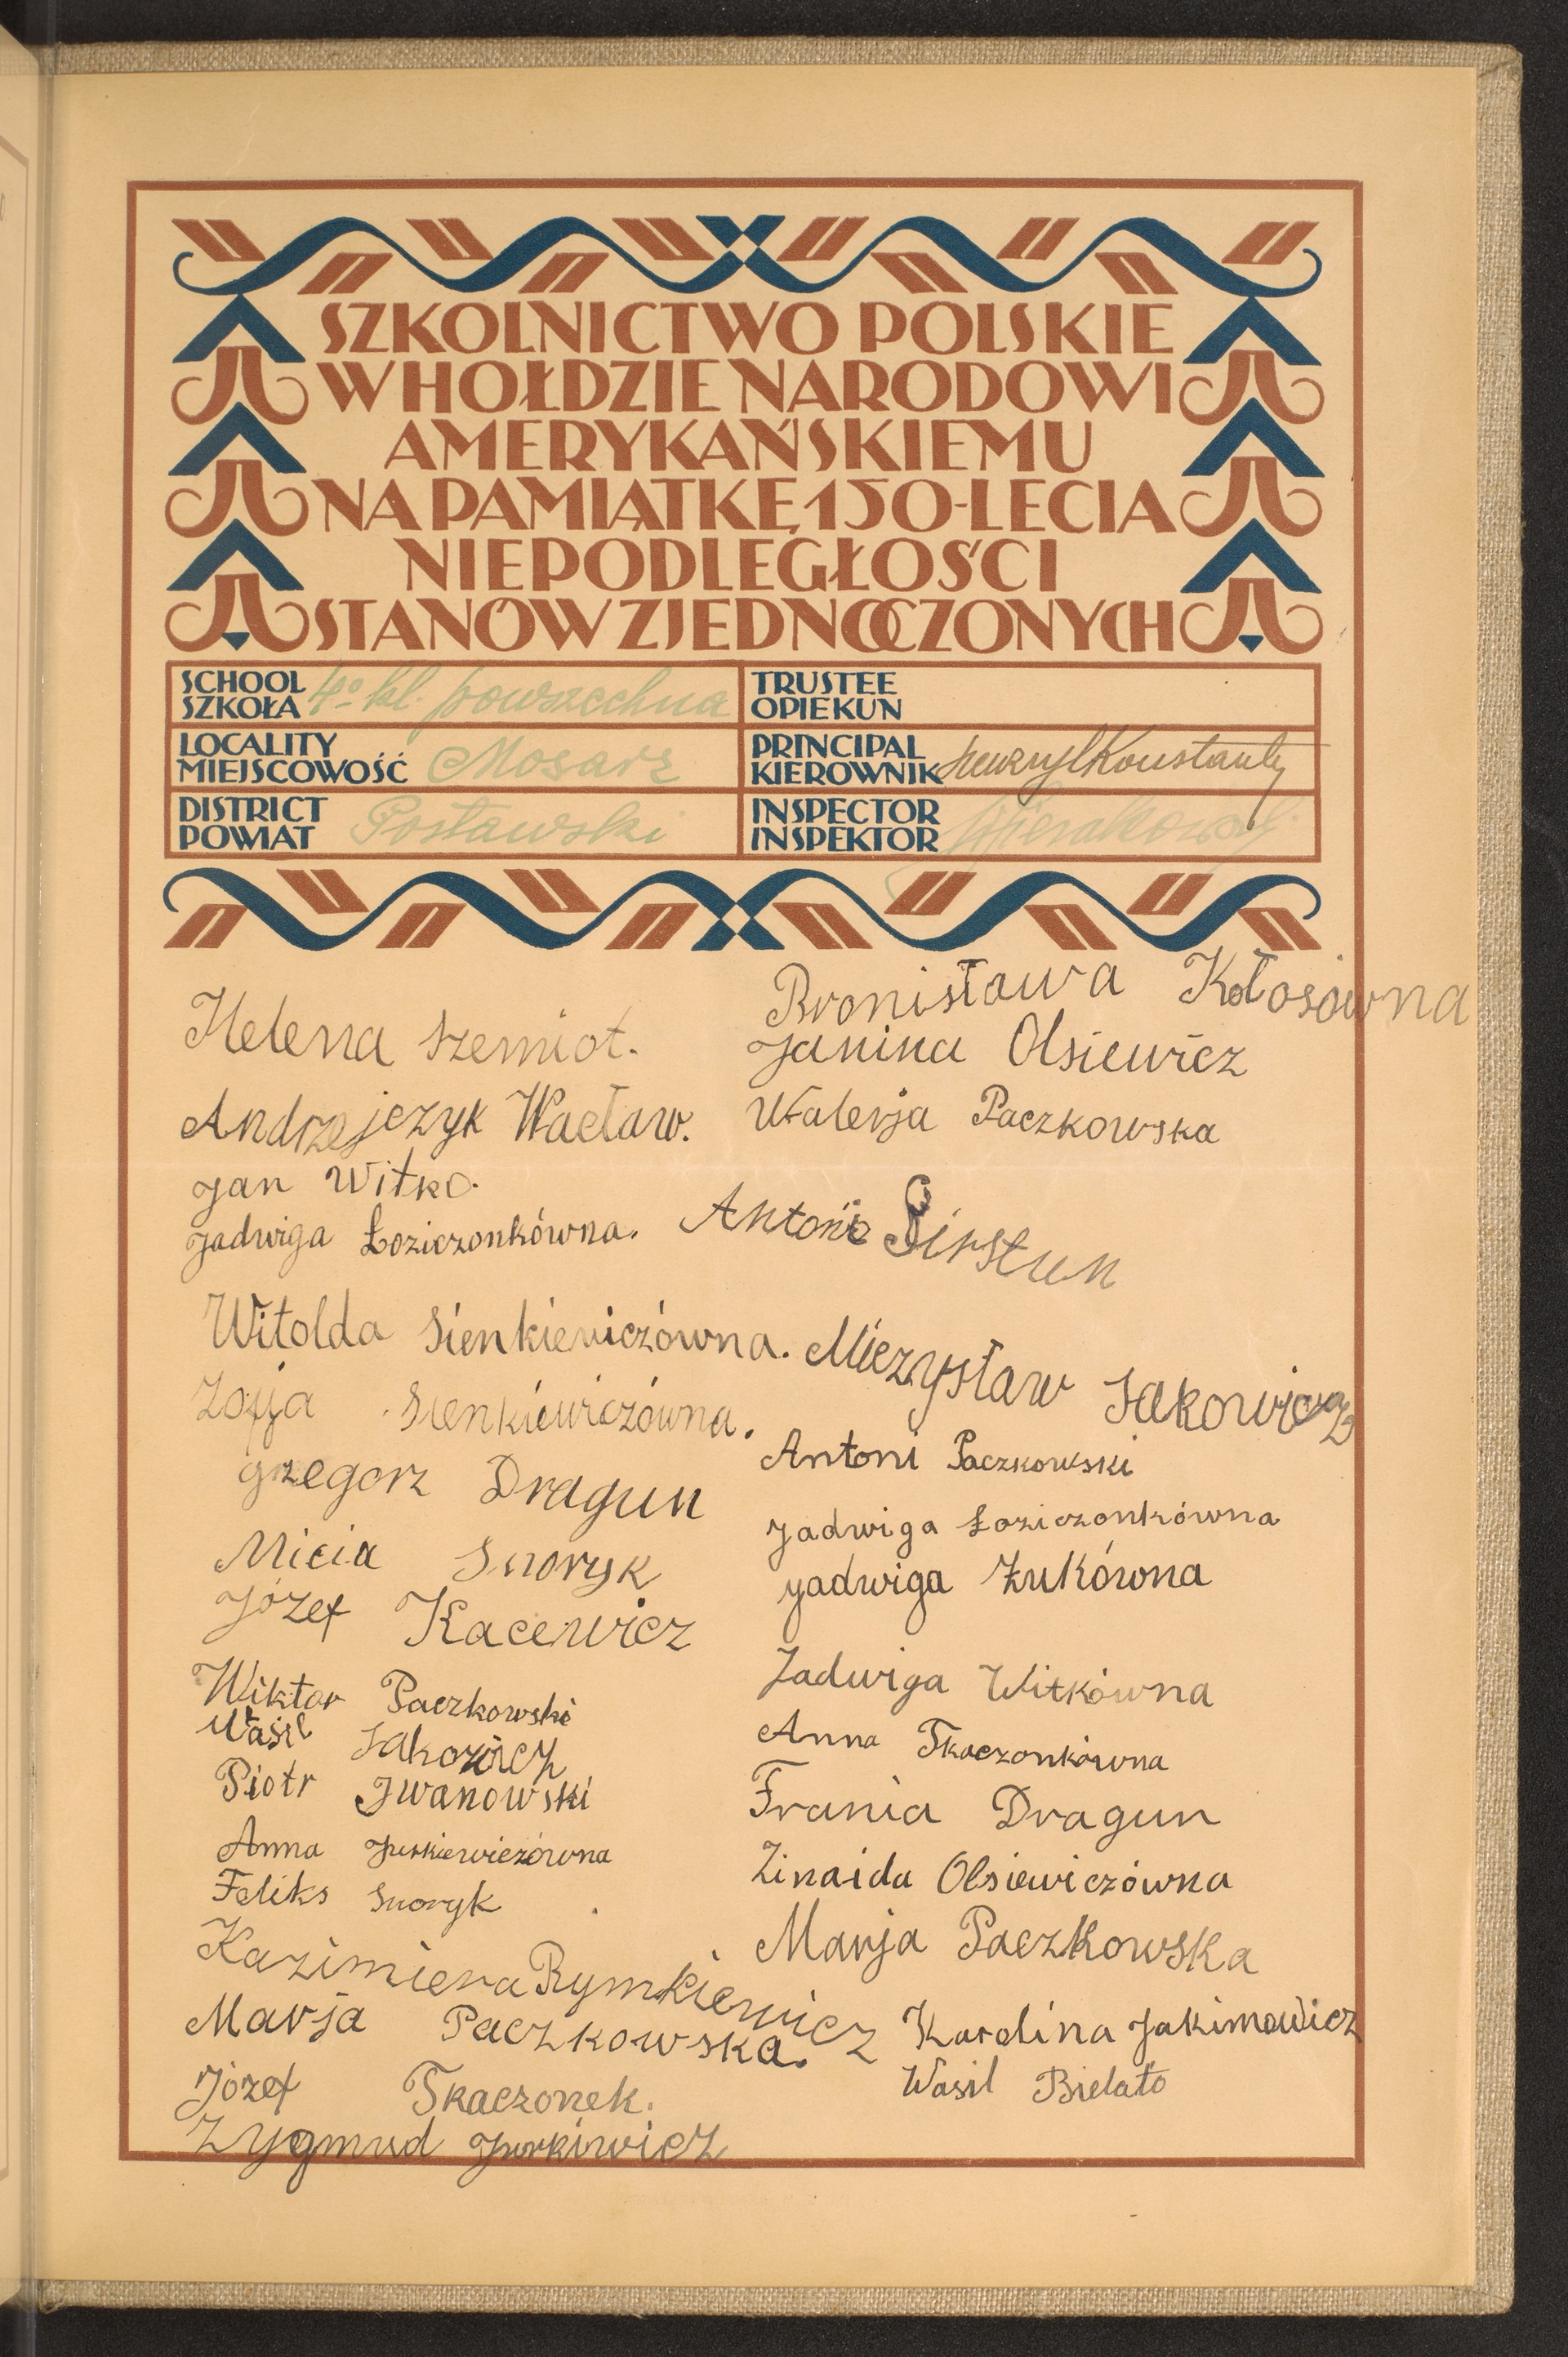 SZKOLNICTWO POLSKIE
W HOŁDZIE NARODOWI
AMERYKAŃSKIEMU
NA PAMIĄTKĘ 150-LECIA
NIEPODLEGŁOŚCI
STANÓW ZJEDNOCZONYCH
SCHOOL
SZKOŁA 4o kl. powszechna
TRUSTEE
OPIEKUN
LOCALITY
MIEJSCOWOŚĆ Mosarz
PRINCIPAL
KIEROWNIK Konstanty
DISTRICT
POWIAT Postawski
INSPECTOR
INSPEKTOR
Helena Szemiot.
Andrzejczyk Wacław.
Jan Witko.
Jadwiga Łoziczonkówna.
Witolda Sienkiewiczówna.
Zofja Sienkiewiczówna.
Grzegorz Dragun
Micia Snoryk
Józef Kacewicz
Wiktor Paczkowski
Wasil Jakowicz
Piotr Iwanowski
Anna Jurkiewiczówna
Feliks Snoryk
Kazimiera Rymkiewicz
Marja Paczkowska.
Józef Tkaczonek.
Zygmud Jurkiwicz
Bronisława Kołosówna
Janina Olsiewicz
Walerja Paczkowska
Antoni Sirstun
Mieczysław Jakowicz
Antoni Paczkowski
Jadwiga Łoziczonkówna
Jadwiga Żukówna
Jadwiga Witkówna
Anna Tkaczonkówna
Frania Dragun
Zinaida Olsiewiczówna
Marja Paczkowska
Karolina Jakimowicz
Wasil Bielato